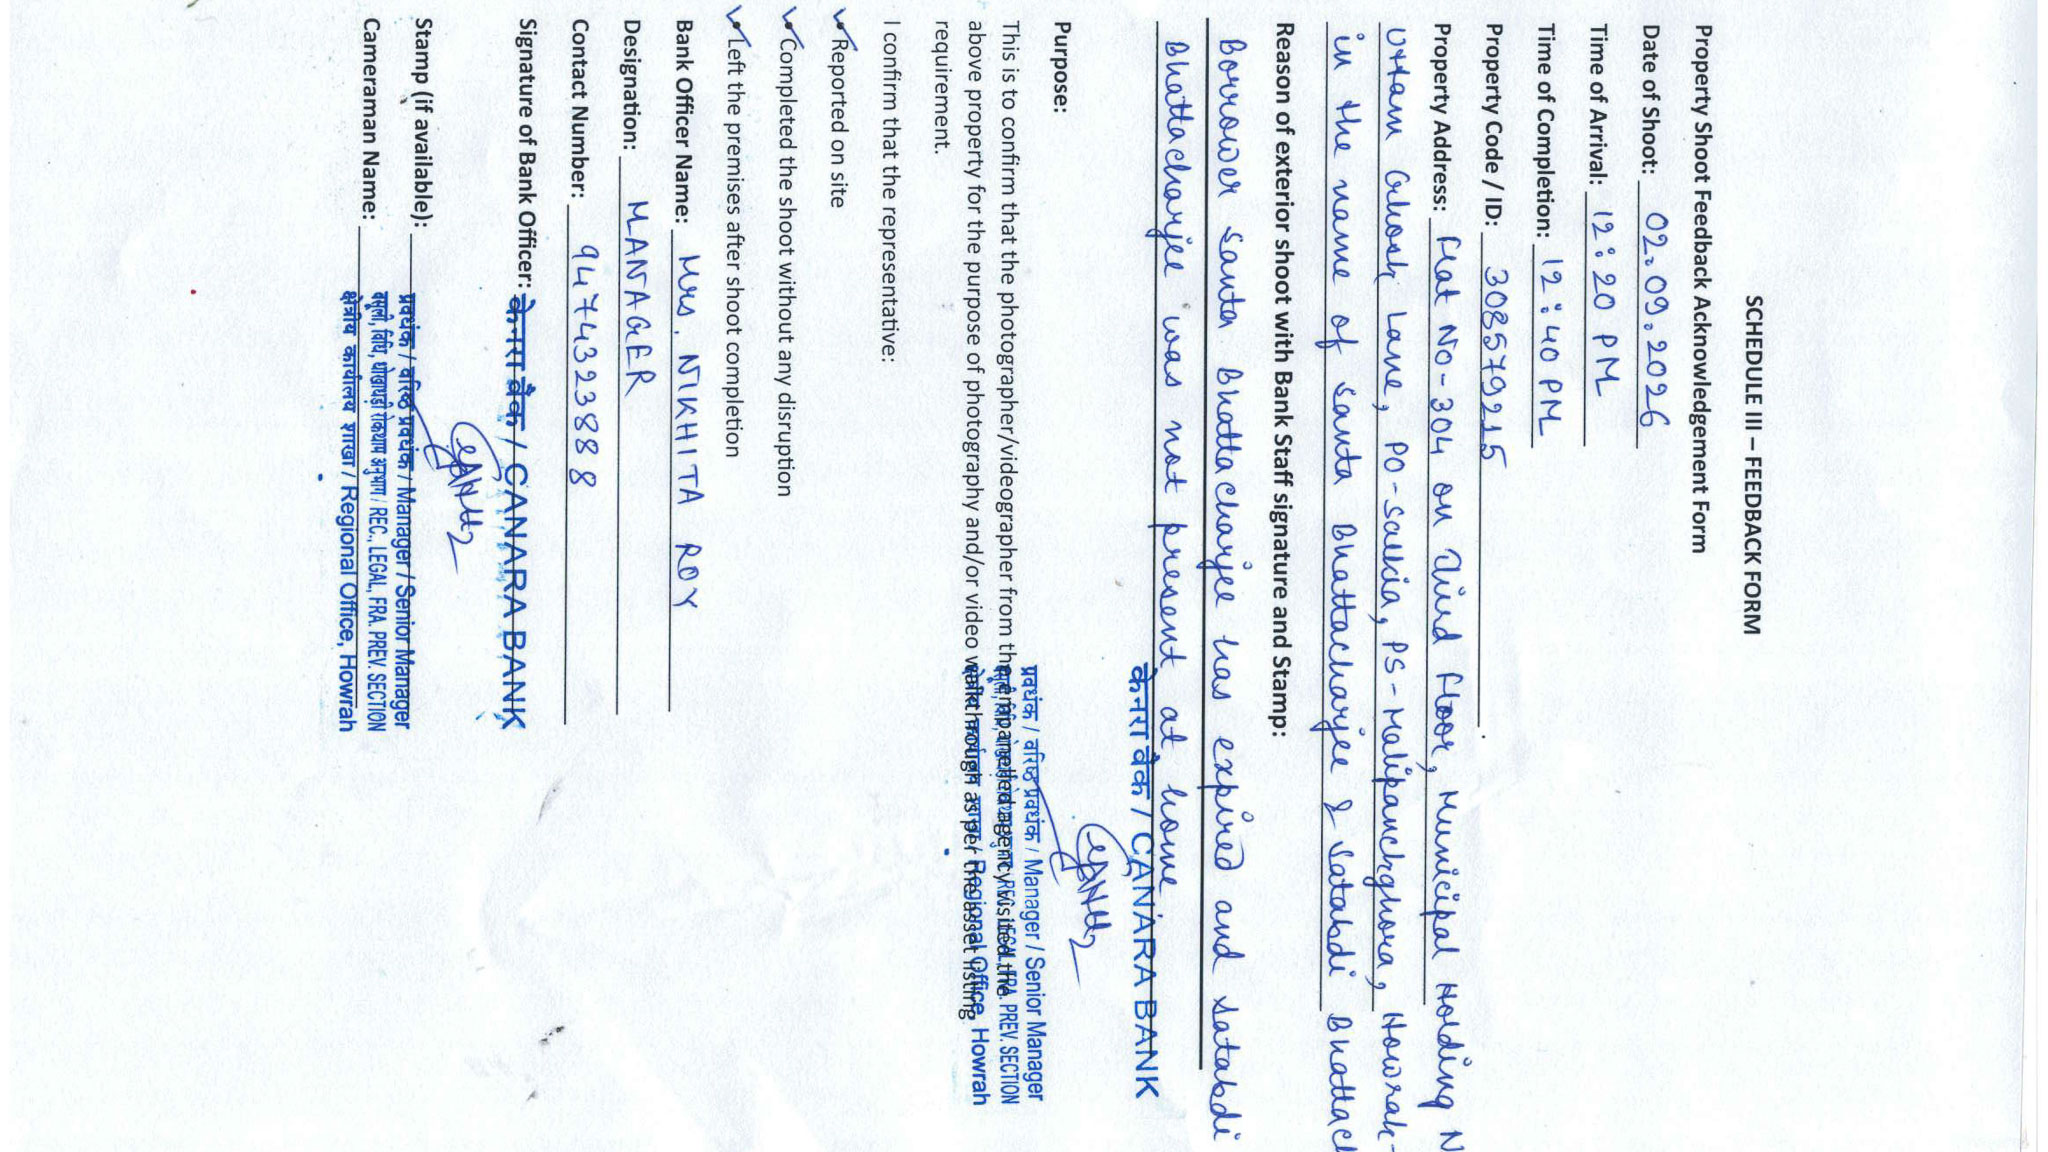 SCHEDULE III – FEEDBACK FORM
Property Shoot Feedback Acknowledgement Form
Date of Shoot: 02.09.2026
Time of Arrival: 12:20 PM
Time of Completion: 12:40 PM
Property Code / ID: 308579215
Property Address: Flat No-304 on Third Floor, Municipal Holding N
Uttam Ghosh Lane, PO-Salkia, PS-Malipanchghora, Howrah-
in the name of Santa Bhattacharjee & Satabdi Bhattach
Reason of exterior shoot with Bank Staff signature and Stamp:
Borrower Santa Bhattacharjee has expired and Satabdi
Bhattacharjee was not present at home
केनरा बैंक / CANARA BANK
प्रबंधक / वरिष्ठ प्रबंधक / Manager / Senior Manager
REC., LEGAL, FRA. PREV. SECTION
Regional Office, Howrah
Purpose:
This is to confirm that the photographer/videographer from the empanelled agency visited the
above property for the purpose of photography and/or video walkthrough as per the asset listing
requirement.
I confirm that the representative:
✓ Reported on site
✓ Completed the shoot without any disruption
✓ Left the premises after shoot completion
Bank Officer Name: Mrs. NIKHITA ROY
Designation: MANAGER
Contact Number: 9474323888
Signature of Bank Officer: केनरा बैंक / CANARA BANK
Stamp (if available): प्रबंधक / वरिष्ठ प्रबंधक / Manager / Senior Manager
वसूली, विधि, धोखाधड़ी रोकथाम अनुभाग / REC., LEGAL, FRA. PREV. SECTION
Cameraman Name: क्षेत्रीय कार्यालय हावड़ा / Regional Office, Howrah